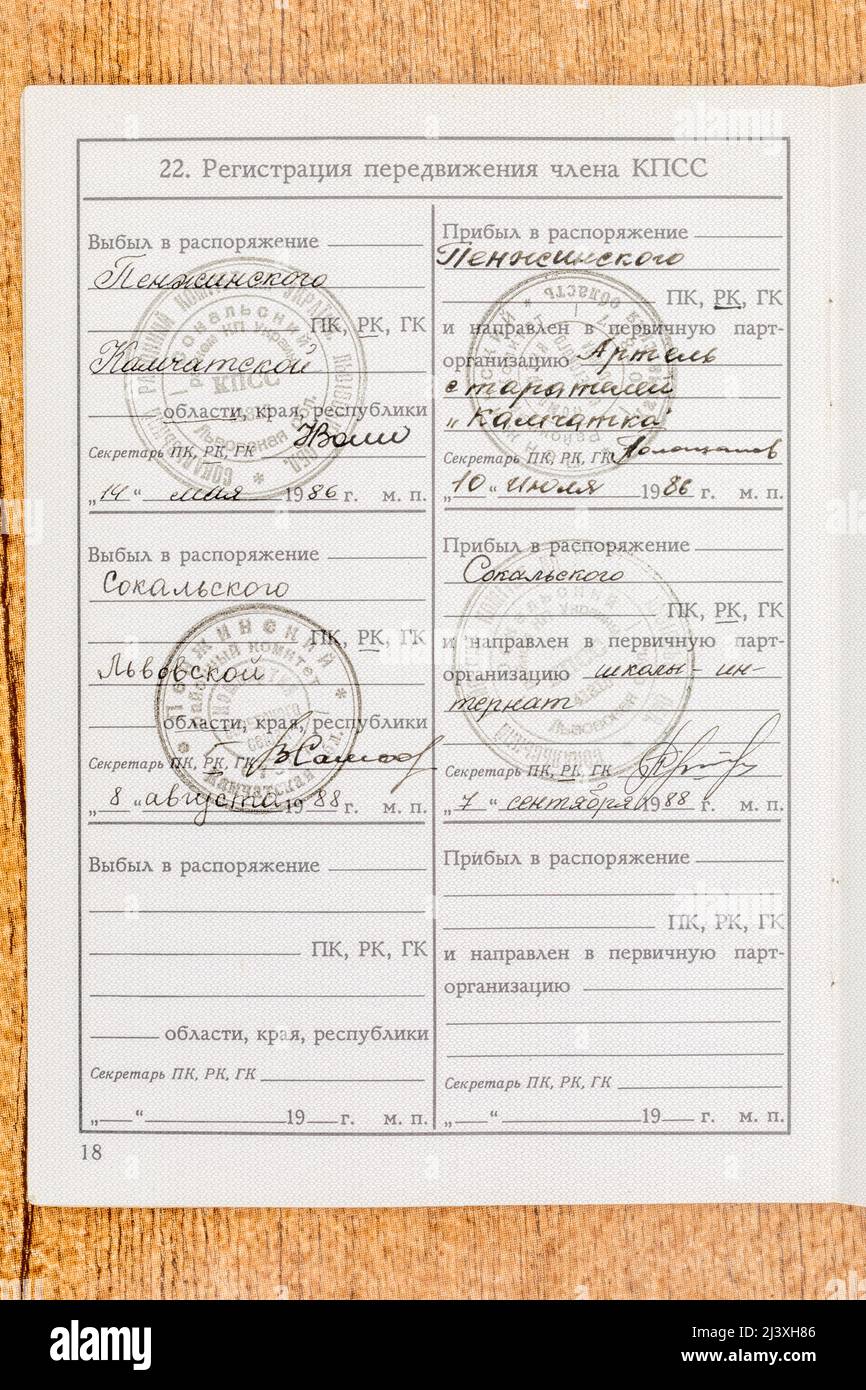 22. Регистрация передвижения члена КПСС
Выбыл в распоряжение
Пенжинского
ПК, РК, ГК
Камчатской
области, края, республики
Секретарь ПК, РК, ГК
„14“ мая 1986 г. м. п.
Прибыл в распоряжение
Пенжинского
ПК, РК, ГК
и направлен в первичную парт-
организацию Артель
старателей
„Камчатка“
Секретарь ПК, РК, ГК
„10“ июля 1986 г. м. п.
Выбыл в распоряжение
Сокальского
ПК, РК, ГК
Львовской
области, края, республики
Секретарь ПК, РК, ГК
„8“ августа 1988 г. м. п.
Прибыл в распоряжение
Сокальского
ПК, РК, ГК
и направлен в первичную парт-
организацию школы-ин-
тернат
Секретарь ПК, РК, ГК
„7“ сентября 1988 г. м. п.
Выбыл в распоряжение
ПК, РК, ГК
области, края, республики
Секретарь ПК, РК, ГК
„ “ 19 г. м. п.
Прибыл в распоряжение
ПК, РК, ГК
и направлен в первичную парт-
организацию
Секретарь ПК, РК, ГК
„ “ 19 г. м. п.
18
КПСС
Львовская обл.
ПЕНЖИНСКИЙ
районный комитет
Камчатская обл.
alamy
Image ID: 2J3XH86
www.alamy.com